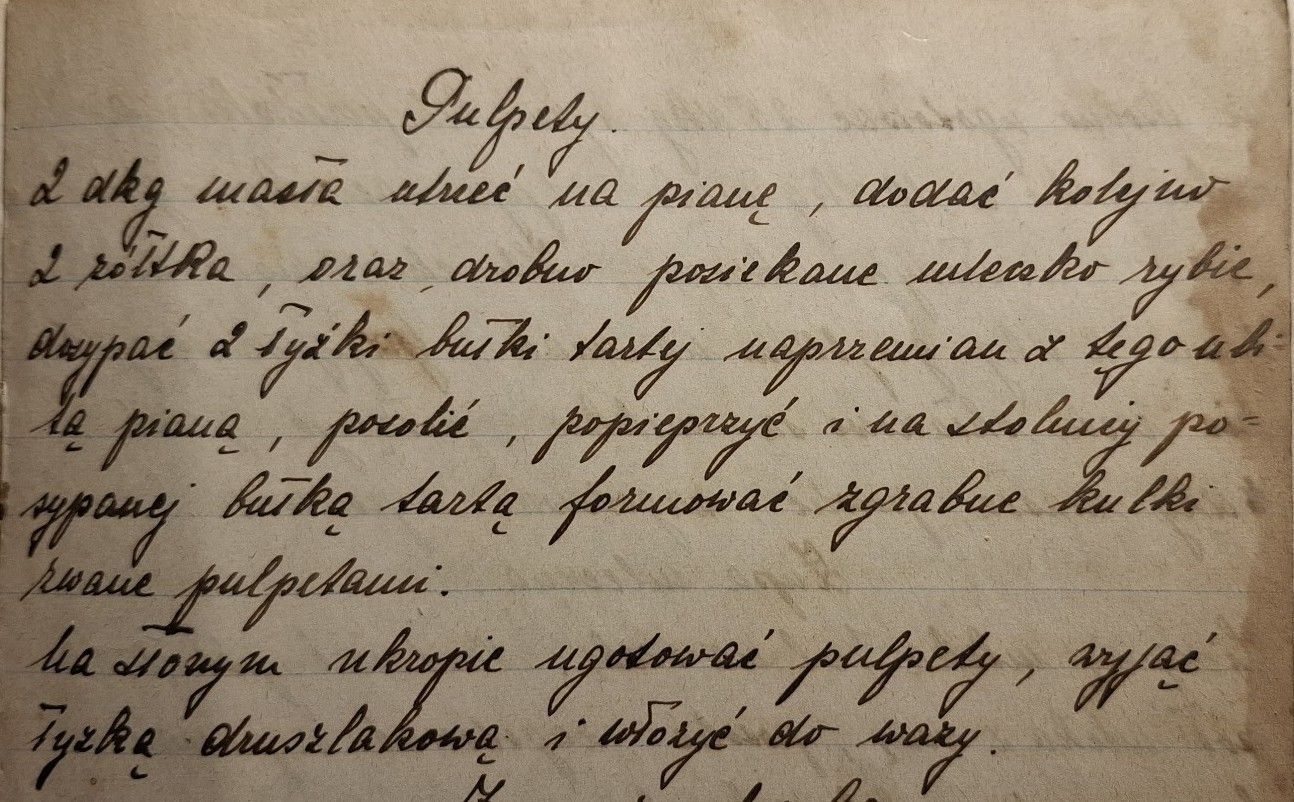 Pulpety.
2 dkg masła utrzeć na pianę, dodać kolejno
2 żółtka, oraz drobno posiekane mleczko rybie,
dosypać 2 łyżki bułki tartej naprzemian z tęgo ubi=
tą pianą, posolić, popieprzyć i na stolnicy po=
sypanej bułką tartą formować zgrabne kulki
zwane pulpetami.
Na słonym ukropie ugotować pulpety, wyjąć
łyżką druszlakową i włożyć do wazy.